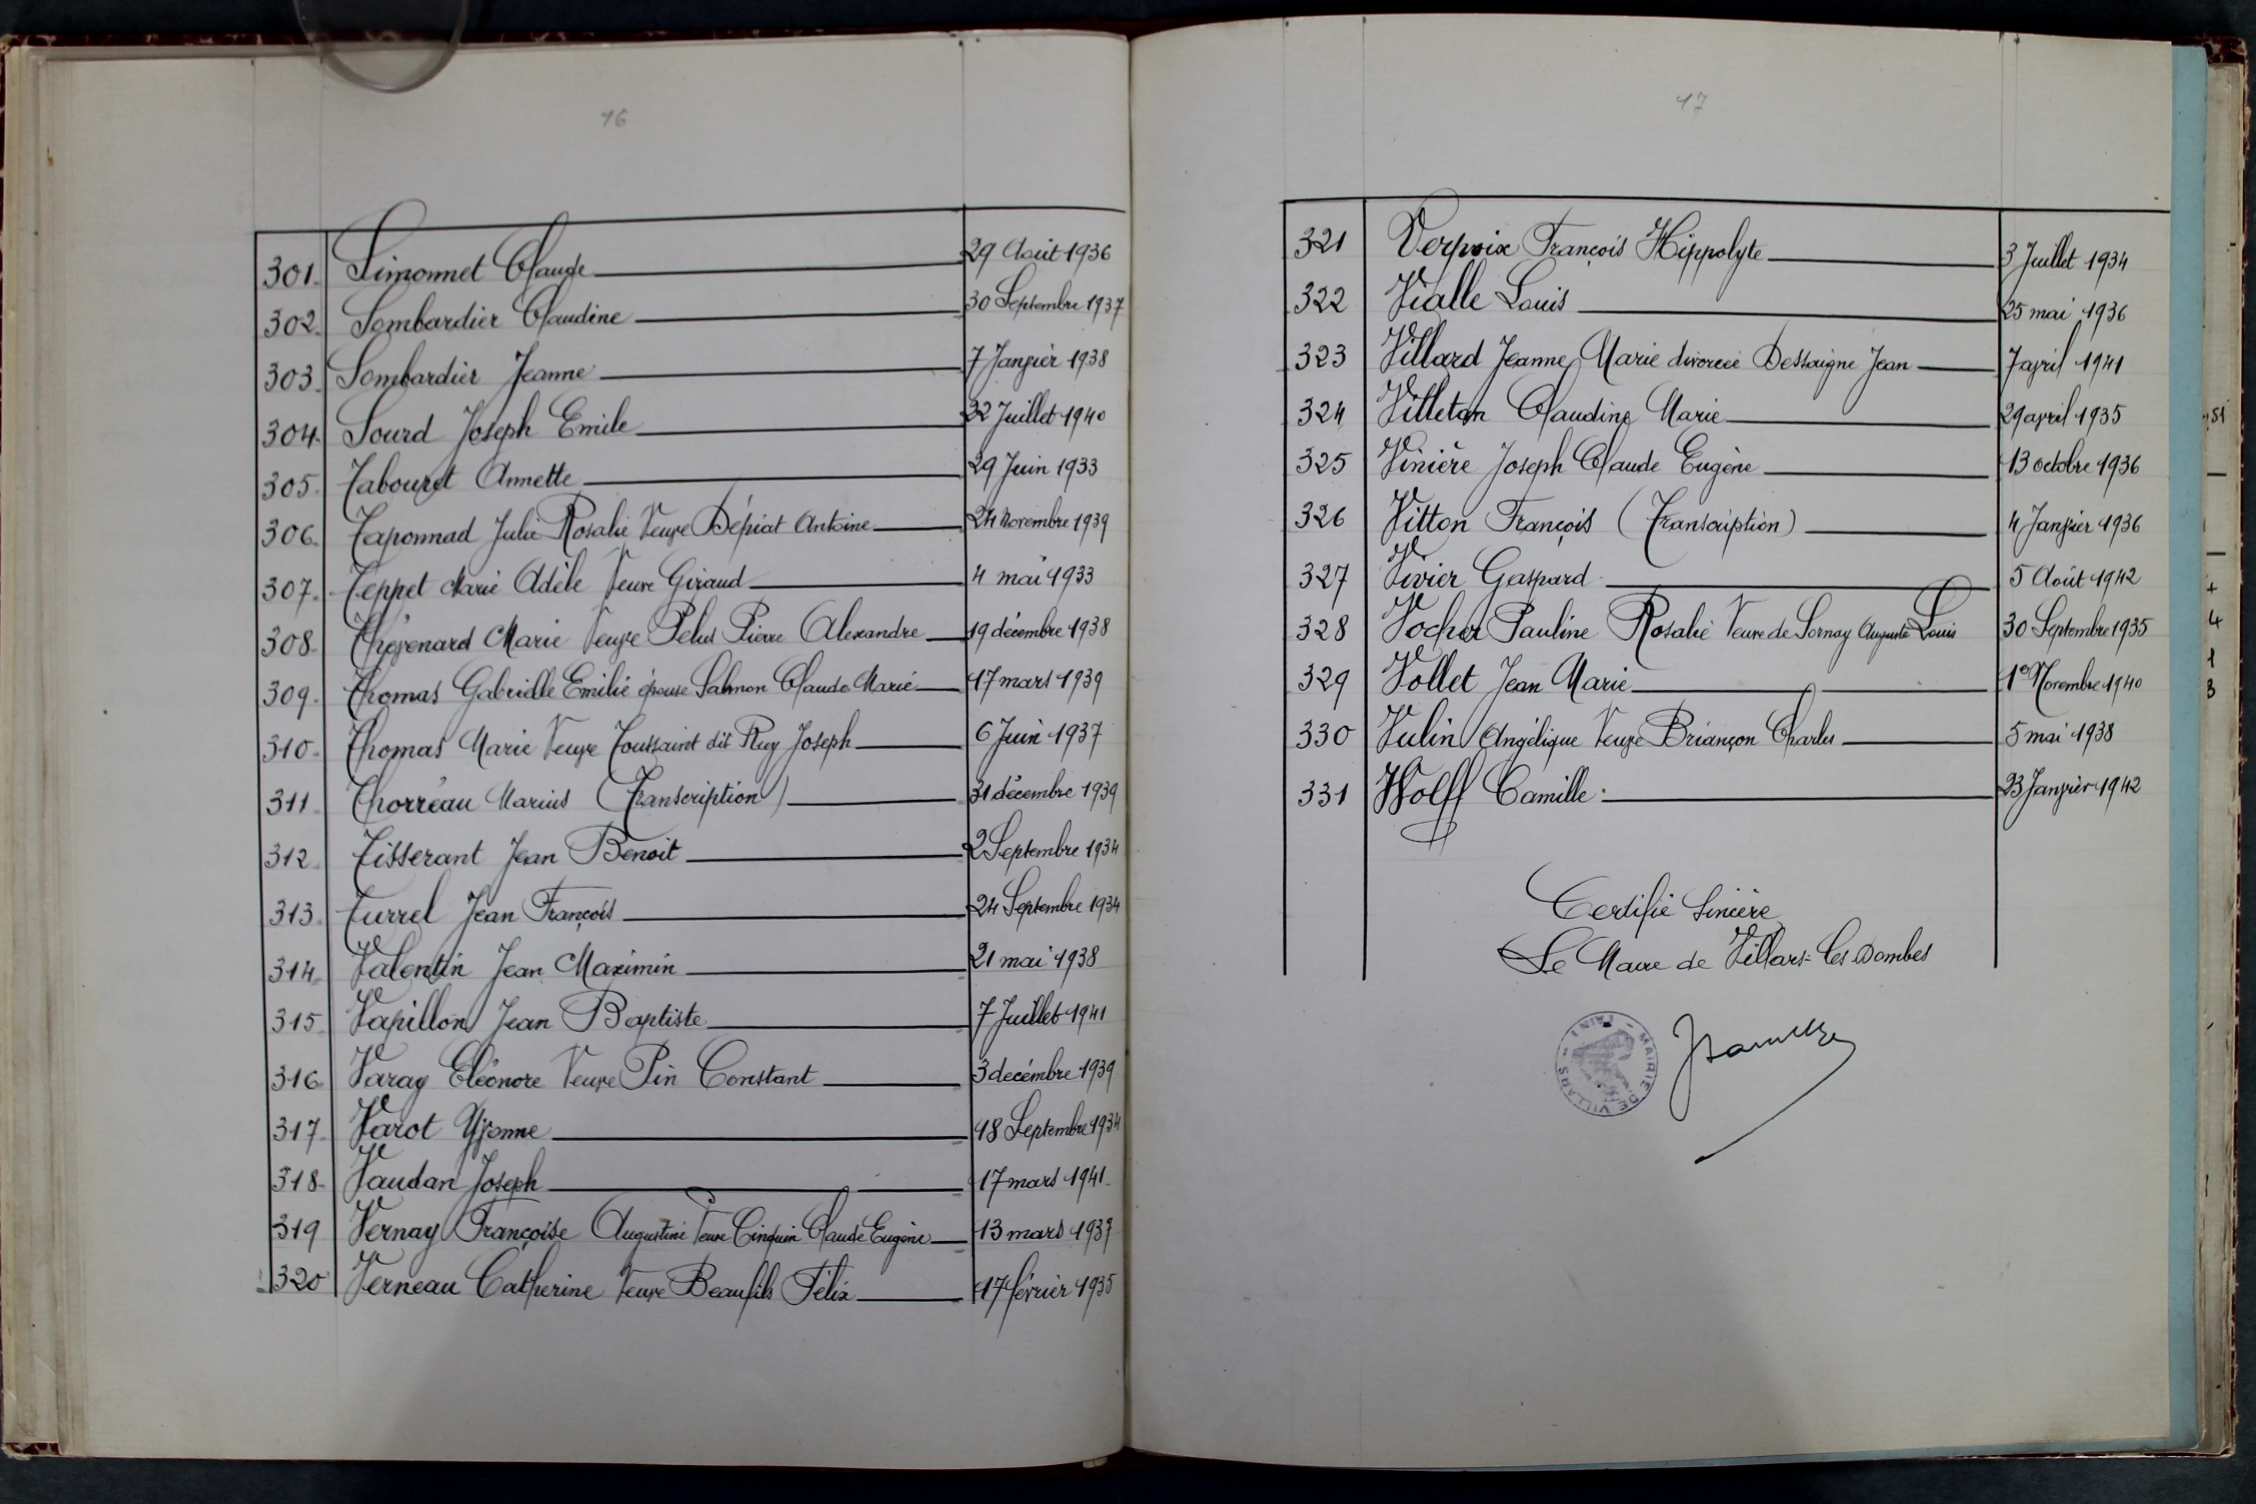 16
301. Simonnet Claude 29 Août 1936
302. Sombardier Claudine 30 Septembre 1937
303. Sombardier Jeanne 7 Janvier 1938
304. Sourd Joseph Emile 22 Juillet 1940
305. Tabouret Annette 29 Juin 1933
306. Taponnad Julie Rosalie Veuve Dépiat Antoine 24 Novembre 1939
307. Teppet Marie Adèle Veuve Giraud 4 mai 1933
308. Thévenard Marie Veuve Pelus Pierre Alexandre 19 décembre 1938
309. Thomas Gabrielle Emilie épouse Salmon Claude Marie 17 mars 1939
310. Thomas Marie Veuve Toussaint dit Ruy Joseph 6 Juin 1937
311. Thorreau Marius (Transcription) 31 décembre 1939
312. Tisserant Jean Benoit 2 Septembre 1934
313. Turrel Jean François 24 Septembre 1934
314. Valentin Jean Maximin 21 mai 1938
315. Vapillon Jean Baptiste 7 Juillet 1941
316. Varay Eléonore Veuve Pin Constant 3 décembre 1939
317. Varot Yvonne 18 Septembre 1934
318. Vaudan Joseph 17 mars 1941
319 Vernay Françoise Augustine Veuve Cinquin Claude Eugène 13 mars 1937
320 Verneau Catherine Veuve Beaufils Félix 17 février 1935
17
321 Verpoix François Hippolyte 3 Juillet 1934
322 Vialle Louis 25 mai 1936
323 Villard Jeanne Marie divorcée Dessaigne Jean 7 avril 1941
324 Villeton Claudine Marie 29 avril 1935
325 Vinière Joseph Claude Eugène 13 octobre 1936
326 Vitton François (Transcription) 4 Janvier 1936
327 Vivier Gaspard 5 Août 1942
328 Vocher Pauline Rosalie Veuve de Sornay Auguste Louis 30 Septembre 1935
329 Vollet Jean Marie 1er Novembre 1940
330 Vulin Angélique Veuve Briançon Charles 5 mai 1938
331 Wolff Camille 23 Janvier 1942
Certifié Sincère
Le Maire de Villars-les Dombes
MAIRIE DE VILLARS (AIN)